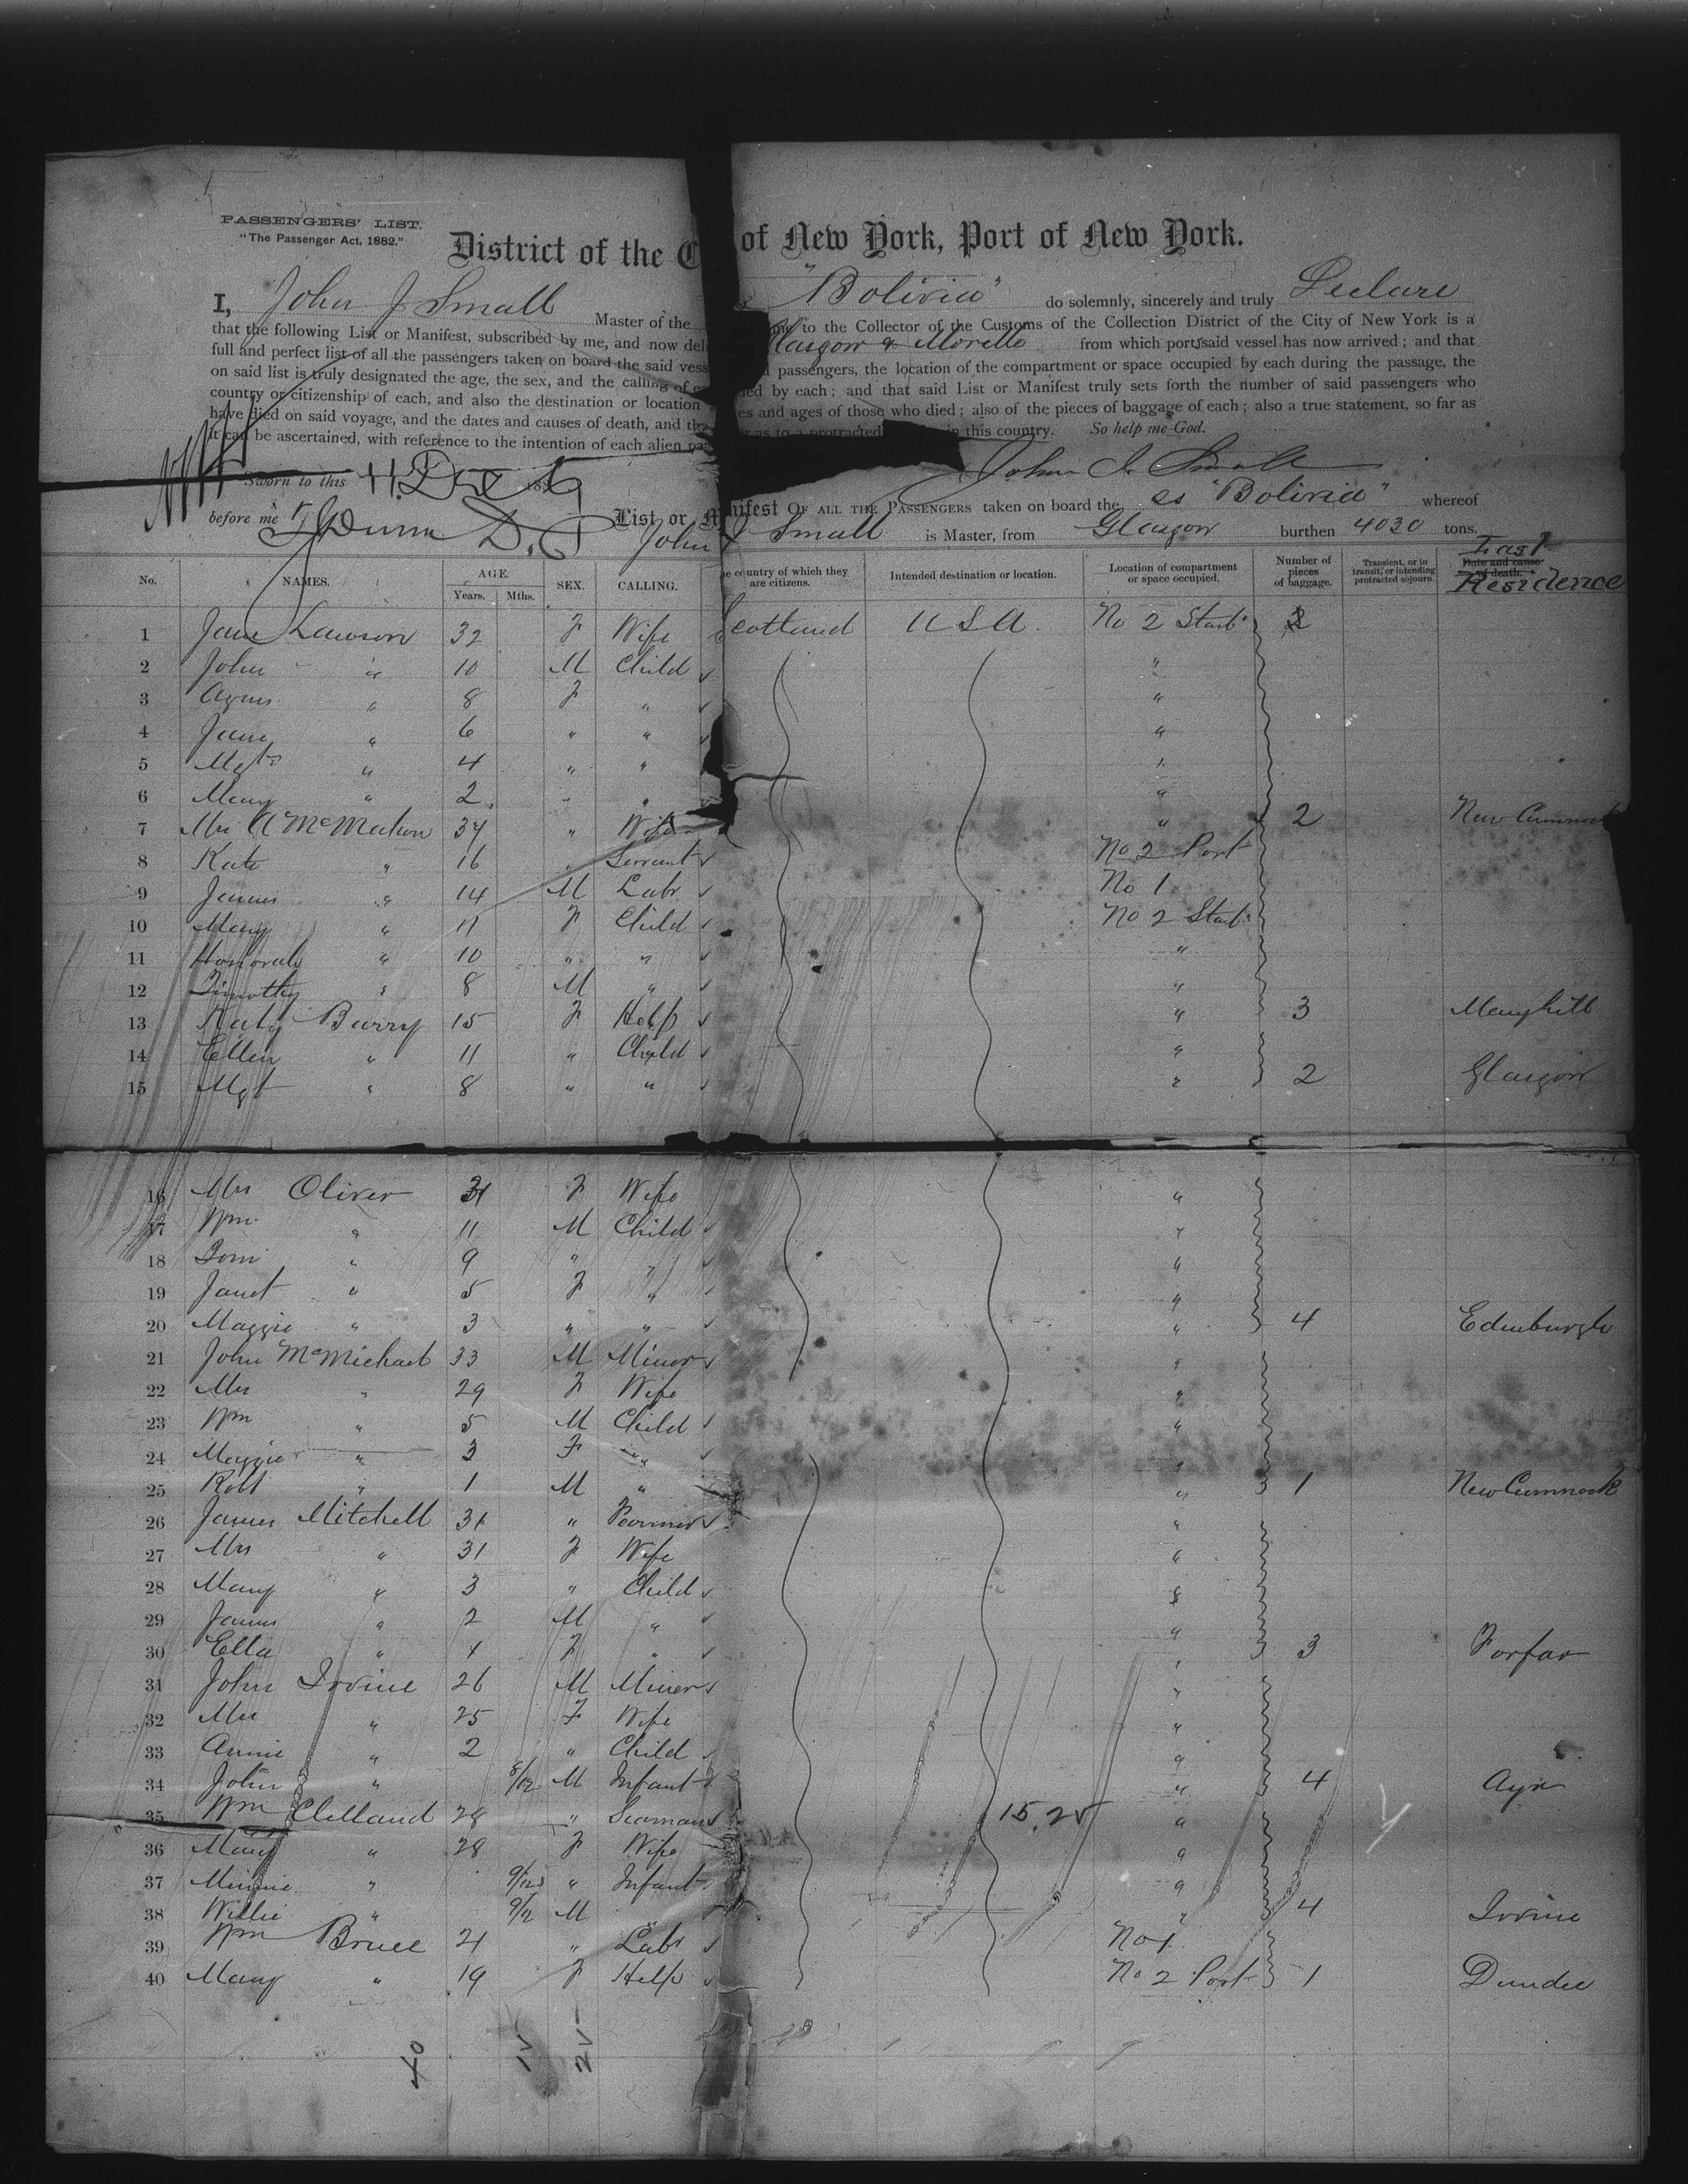 PASSENGERS' LIST.
"The Passenger Act, 1882."
District of the C of New York, Port of New York.
I, John J Small Master of the "Bolivia" do solemnly, sincerely and truly Declare
that the following List or Manifest, subscribed by me, and now del to the Collector of the Customs of the Collection District of the City of New York is a
full and perfect list of all the passengers taken on board the said vess Glasgow & Moville from which port said vessel has now arrived; and that
on said list is truly designated the age, the sex, and the calling of passengers, the location of the compartment or space occupied by each during the passage, the
country or citizenship of each, and also the destination or location by each; and that said List or Manifest truly sets forth the number of said passengers who
have died on said voyage, and the dates and causes of death, and and ages of those who died; also of the pieces of baggage of each; also a true statement, so far as
it can be ascertained, with reference to the intention of each alien as to a protracted in this country. So help me God.
John J. Small
Sworn to this 11 Dec 188 6
before me Dunn D.C
List or Manifest OF ALL THE PASSENGERS taken on board the ss "Bolivia" whereof
John J Small is Master, from Glasgow burthen 4030 tons.
No. NAMES. AGE. Years. Mths. SEX. CALLING. country of which they are citizens. Intended destination or location. Location of compartment or space occupied. Number of pieces of baggage. Transient, or in transit, or intending protracted sojourn. Date and cause of death. Last Residence
1 Jane Lawson 32 F Wife Scotland USA No 2 Starb 2
2 John " 10 M Child "
3 Agnes " 8 F " "
4 Jane " 6 " " "
5 Mgt " 4 " " "
6 Mary " 2 " " "
7 Mrs A McMahon 34 " Wife " 2 New Cumnock
8 Kate " 16 " Servant No 2 Port
9 James " 14 M Labr No 1
10 Mary " 11 F Child No 2 Starb
11 Honorah " 10 " " "
12 Timothy " 8 M " "
13 Katy Barry 15 F Help " 3 Maryhill
14 Ellen " 11 " Child "
15 Mgt " 8 " " " 2 Glasgow
16 Mrs Oliver 31 F Wife "
17 Wm " 11 M Child "
18 Tom " 9 " " "
19 Janet " 5 F " "
20 Maggie " 3 " " " 4 Edinburgh
21 John McMichael 33 M Miner "
22 Mrs " 29 F Wife "
23 Wm " 5 M Child "
24 Maggie " 3 F " "
25 Robt " 1 M " " 1 New Cumnock
26 James Mitchell 31 " Farmer "
27 Mrs " 31 F Wife "
28 Mary " 3 " Child "
29 James " 2 M " "
30 Ella " 1 F " " 3 Forfar
31 John Irvine 26 M Miner "
32 Mrs " 25 F Wife "
33 Annie " 2 " Child "
34 John " 8/12 M Infant " 4 Ayr
35 Wm Clelland 28 " Seaman 15.25 "
36 Mary " 28 F Wife "
37 Minnie " 9/12 " Infant "
38 Willie " 9/12 M " " 4 Irvine
39 Wm Bruce 21 " Labr No 1
40 Mary " 19 F Help No 2 Port 1 Dundee
40 15 25